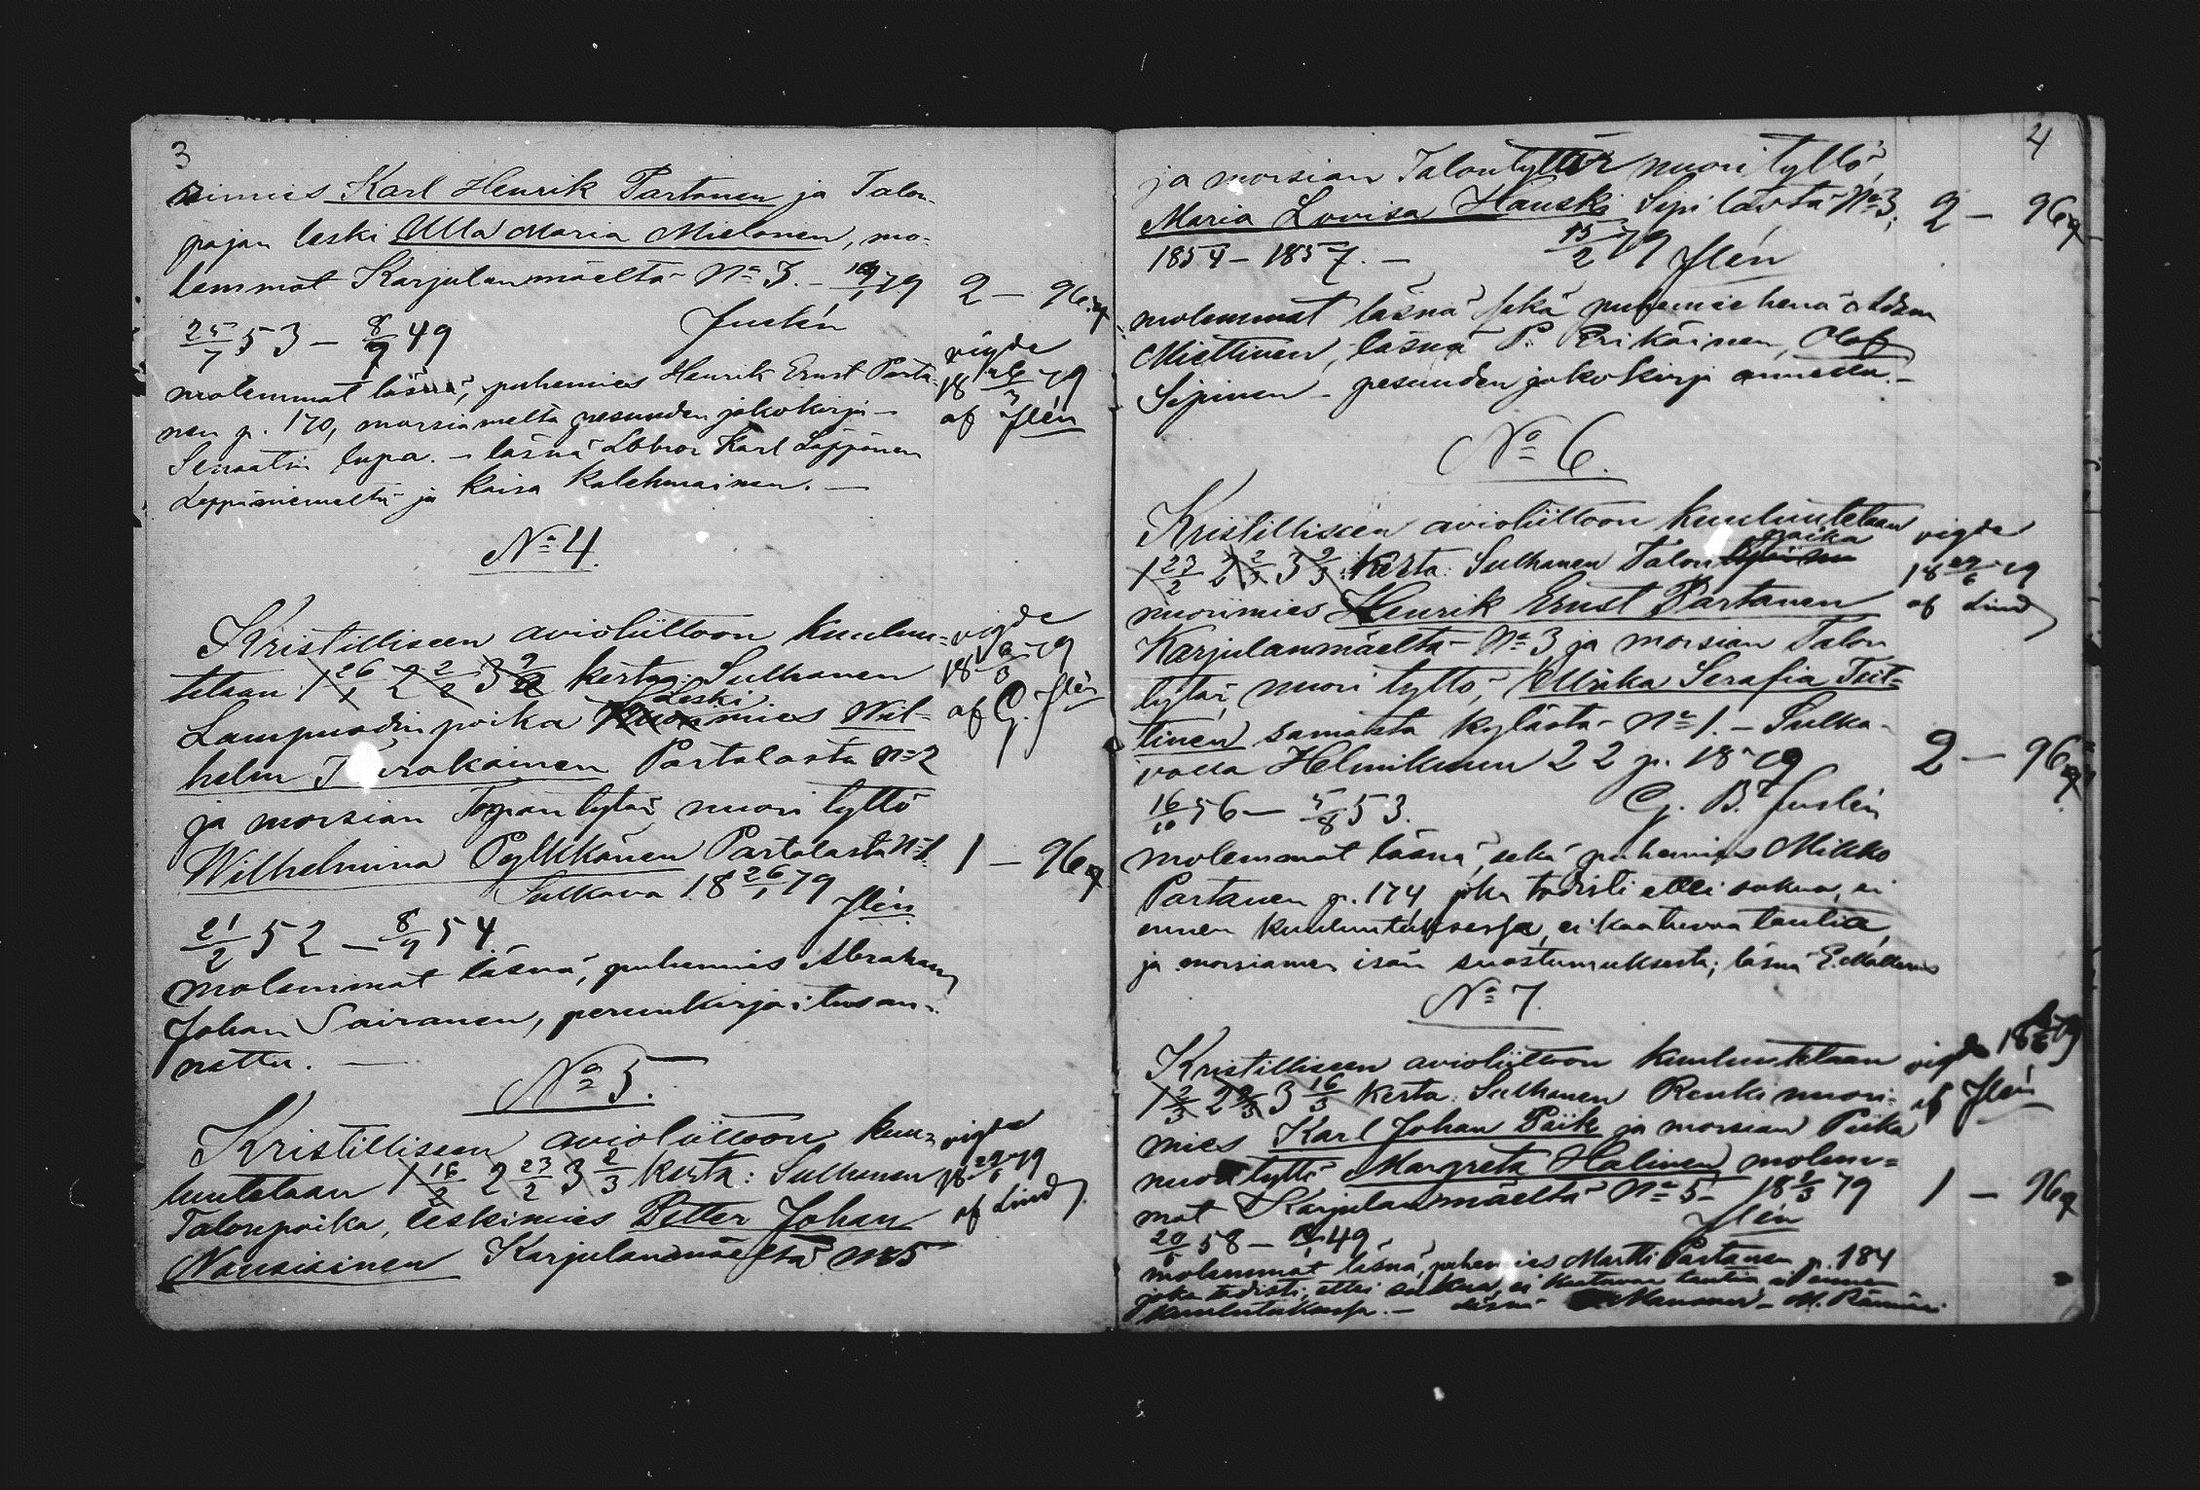 3
nimies Karl Henrik Partanen ja Talon-
pojan leski Ulla Maria Mielonen, mo-
lemmat Karjulanmäeltä No 3. - 79
2 - 96
25/7 53 - 8/9 49
Juslén
vigde
molemmat läsnä, puhemies Henrik Ernst Parta-
nen p. 170, morsiamelta pesunden jakokirja -
af Jlén
Senaatin lupa. - läsnä Karl Läppänen
Leppäniemeltä ja Kaisa Kolehmainen. -
No 4.
Kristilliseen avioliittoon kuulu-
vigde
tetaan 1 26/1 2 2/2 3 9/2 kerta: Sulhanen
18 /3 79
Lampuodin poika Leski mies Wil-
af G. Jlén
helm Partalasta No 2
ja morsian tytär, nuori tyttö
Wilhelmina Pylkkänen Partalasta No 1.
1 - 96
Sulkava 18 26/1 79
Jlén
21/2 52 - 8/9 54
molemmat läsnä, puhemies Abraham
Johan Sairanen, perunkirjoitus an-
nettu. -
No 5.
Kristilliseen avioliittoon kuu-
vigde
lutetaan 1 16/2 2 23/2 3 2/3 kerta: Sulhanen
af Lind
Talonpoika, leskimies Petter Johan
Nousiainen Karjulanmäeltä No 5
4
ja morsian Talontytär nuori tyttö,
Maria Lovisa Hauski Sipilästä No 3,
2 - 96
1854 - 1857. -
15/2 79 Jlén
molemmat läsnä sekä puhemiehenä Adam
Miettinen, läsnä P. Erikäinen, Olof
Sipinen - pesunden jakokirja annettu. -
No 6.
Kristilliseen avioliittoon kuulutetaan
vigde
1 23/2 2 2/3 3 9/3 kerta: Sulhanen Talon poika
nuorimies Henrik Ernst Partanen
af Lind
Karjulanmäeltä No 3 ja morsian Talon
tytär, nuori tyttö, Ulrika Serafia Tiit-
tinen samasta kylästä No 1. - Sulka-
valla Helmikuun 22 p. 1879
2 - 96
16/10 56 - 5/8 53.
G. B. Juslén
molemmat läsnä, sekä puhemies Mikko
Partanen p. 174, joka todisti ettei sukua, ei
ennen kuulutuksessa, ei kaatuvaa tautia,
ja morsiamen isän suostumuksesta; läsnä
No 7.
Kristilliseen avioliittoon kuulutetaan
vigde
1 2/3 2 9/3 3 16/3 kerta: Sulhanen Renki nuori-
af Jlén
mies Karl Johan Päik ja morsian Piika
nuori tyttö Margreta Halinen molem-
mat Karjulanmäeltä No 5 - 18 /3 79
1 - 96
Jlén
58 - 49
molemmat läsnä, puhemies Martti Partanen p. 184
joka todisti, ettei sukua, ei kaatuvaa tautia ei ennen
kuulutuksessa. - läsnä